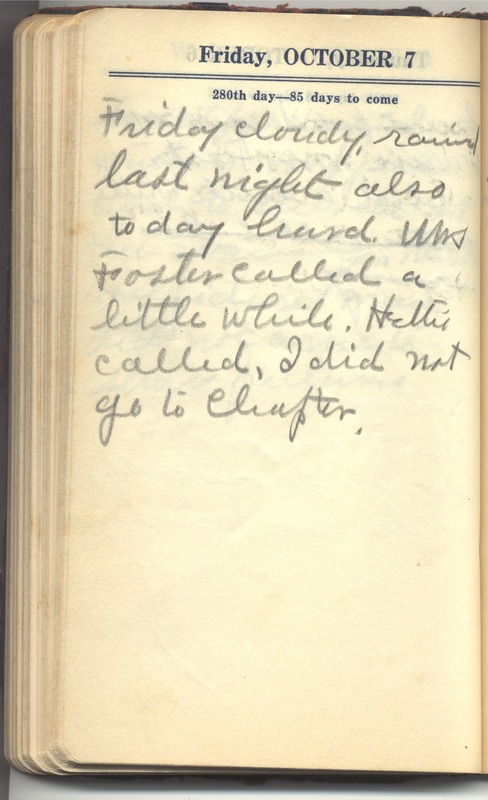 Friday, OCTOBER 7
280th day—85 days to come
Friday cloudy, rained
last night also
today hard. Mrs
Foster called a
little while. Hettie
called, I did not
go to Chapter.